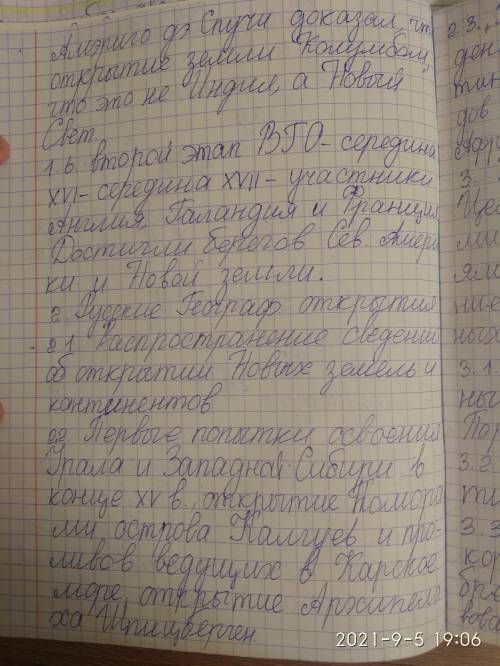 Амэриго дэ Спучи доказал, что
открытие земли Колумбом,
что это не Индия, а Новый
Свет.
1.6. второй этап ВГО - середина
XVI - середина XVII - участники
Англия, Галандия и Франция
Достигли берегов Сев. Амери
ки и Новой земли.
2. Русские Географ открытия
2.1 Распространение сведений
об открытии Новых земель и
континентов
2.2 Первые попытки освоения
Урала и Западной Сибири в
конце XV в., открытие Помора
ми острова Калгуев и про-
ливов ведущих в Карское
море, открытие Архипела
ха Шпицверген
2021-9-5 19:06
2.3.
ден
тин
дов
Афр
3.
Цел
ми
ям
ние
ных
3.1.
ны
Пор
3.2
ти
3.3
кор
бре
вова